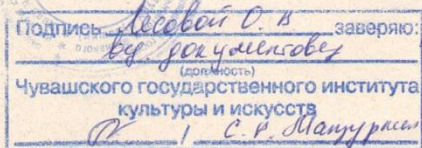 Подпись Лесовой О. В заверяю:
вед. документовед
(должность)
Чувашского государственного института
культуры и искусств
/ С. А.